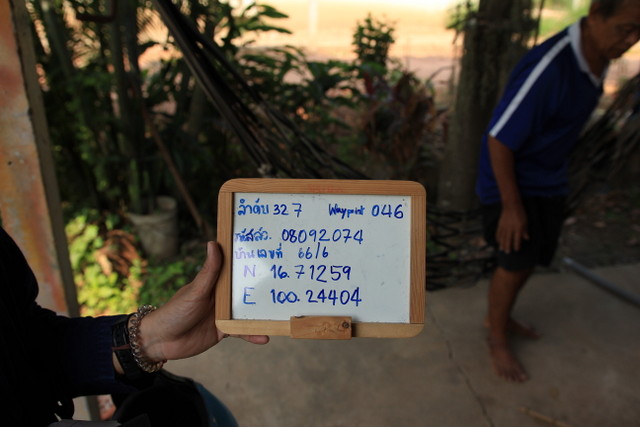 ลำดับ 327 Waypoint 046
รหัสสว. 08092074
บ้านเลขที่ 66/6
N 16.71259
E 100.24404